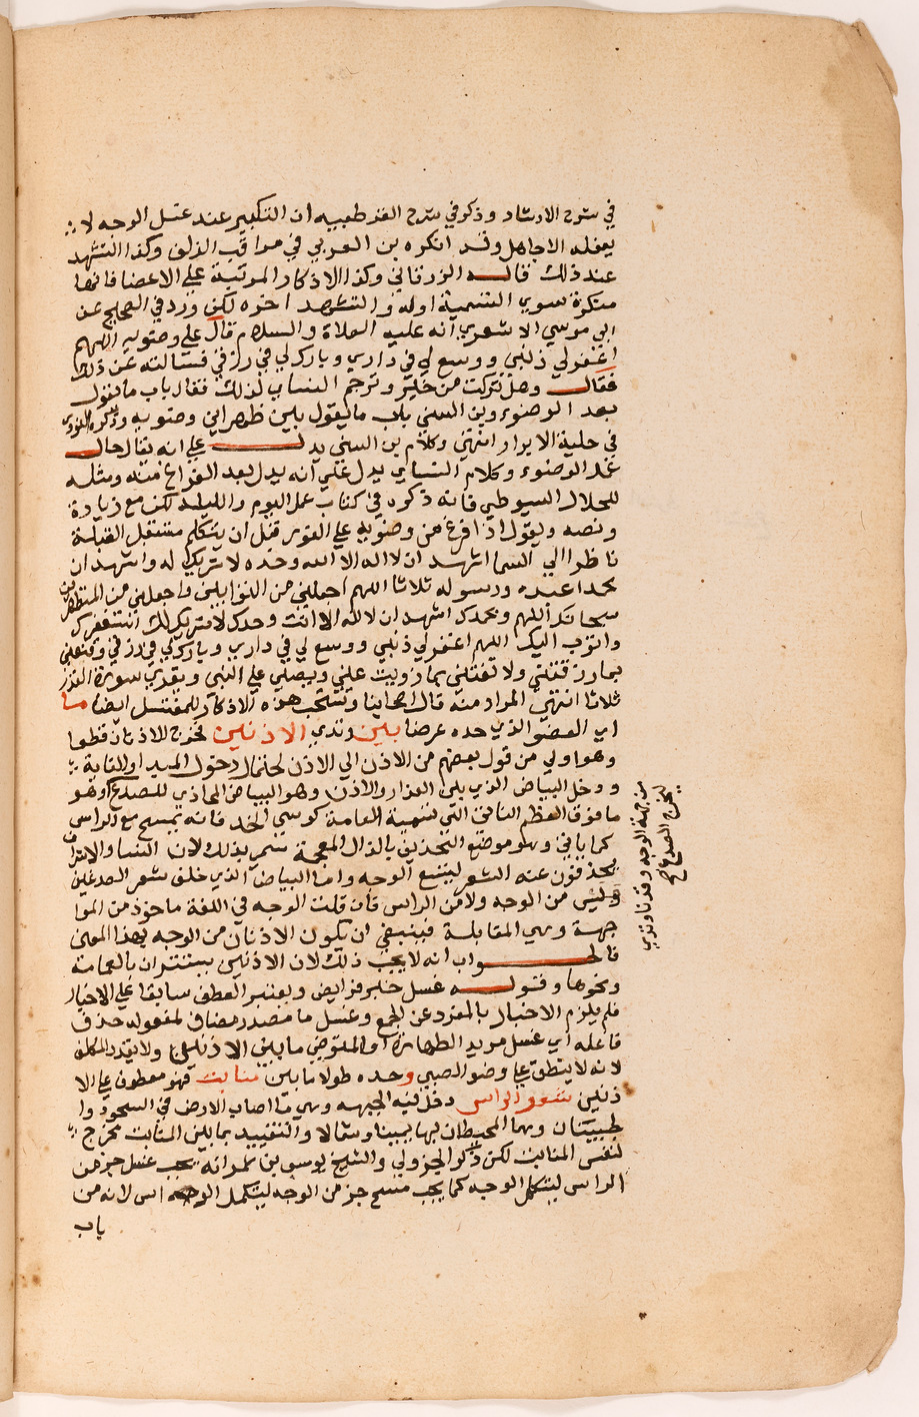 في شرح الارشاد وذكر في شرح القرطبيه ان التكبير عند غسل الوجه لا
يفعله الا جاهل وقد انكره بن العربي في مراقب الزلف وكذا التشهد
عند ذلك قال الزرقاني وكذا الاذكار المرتبة علي الاعضا فانها
منكرة سوي التسمية اوله والتشهد اخره لكن ورد في الصحيح عن
ابي موسي الاشعري انه عليه الصلاة والسلام قال علي وضوئه اللهم
اغفر لي ذنبي ووسع لي في داري وبارك لي في رزقي فسالته عن ذلك
فقال وهل تركت من خير وترجم النساي لذلك فقال باب ما يقول
بعد الوضوء وبن السني باب ما يقول بين ظهراني وضوءه وذكره النووي
في حلية الابرار انتهي وكلام بن السني يدل علي انه يقال حال
عند الوضوء وكلام النساي يدل علي انه يدل بعد الفراغ منه ومثله
للجلال السيوطي فانه ذكره في كتاب عمل اليوم والليلة لكن مع زيادة
ونصه ويقول اذا فرغ من وضوءه علي الفور قبل ان يتكلم مستقبل القبلة
ناظرا الي السما اشهد ان لا اله الا الله وحده لا شريك له واشهد ان
محمدا عبده ورسوله ثلاثا اللهم اجعلني من التوابين واجعلني من المتطهرين
سبحانك اللهم وبحمدك اشهد ان لا اله الا انت وحدك لا شريك لك استغفرك
واتوب اليك اللهم اغفر لي ذنبي ووسع لي في داري وبارك لي في رزقي وقنعني
بما رزقتني ولا تفتني بما زويت عني ويصلي علي النبي ويقري سورة القدر
ثلاثا انتهي المراد منه قال اصحابنا وتستحب هذه الاذكار للمغتسل ايضا ما
اي العضو الذي حده عرضا بين وتدي الاذنين فخرج الاذنان قطعا
وهو اولي من قول بعضهم من الاذن الي الاذن لاحتمال دخول المبدا والغاية
ودخل البياض الذي بين العذار والاذن وهو البياض المحاذي للصدغ وهو
ما فوق العظم الناتئ التي تسميه العامة كرسي الخد فانه يمسح مع الراس
كما ياتي وهو موضع التحذيف بالذال المعجمة سمي بذلك لان النسا والاشراف
يحذفون عنه الشعر ليتسع الوجه واما البياض الذي خلف شعر الصدغين
وليس من الوجه ولا من الراس فان قلت الوجه في اللغة ماخوذ من الموا
جهة وهي المقابلة فينبغي ان يكون الاذنان من الوجه بهذا المعني
فالجواب انه لا يجب ذلك لان الاذنين يستتران بالعمامة
ونحوها وقوله غسل خبر فرايض ويعتبر العطف سابقا علي الاخبار
فلم يلزم الاخبار بالمفرد عن الجمع وغسل ما مصدر مضاف لمفعوله حذف
فاعله اي غسل مريد الطهارة او المتوضي ما بين الاذنين ولا يقدر المكلف
لانه لا ينطبق علي وضو الصبي وحده طولا ما بين منابت فهو معطوف علي الا
ذنين شعر الراس دخل فيه الجبهه وهي ما اصاب الارض في السجود وا
لجبينان وهما المحيطان بها يمينا وشمالا والتقييد بما بين المنابت مخرج
لنفس المنابت لكن ذكر الجزولي والشيخ يوسف بن عمر انه يجب غسل جز من
الراس ليتكمل الوجه كما يجب مسح جز من الوجه ليتكمل الوجه اس لانه من
باب
من جهة الوجه وقدرنا وتدي
ليخرج الصدغ صح